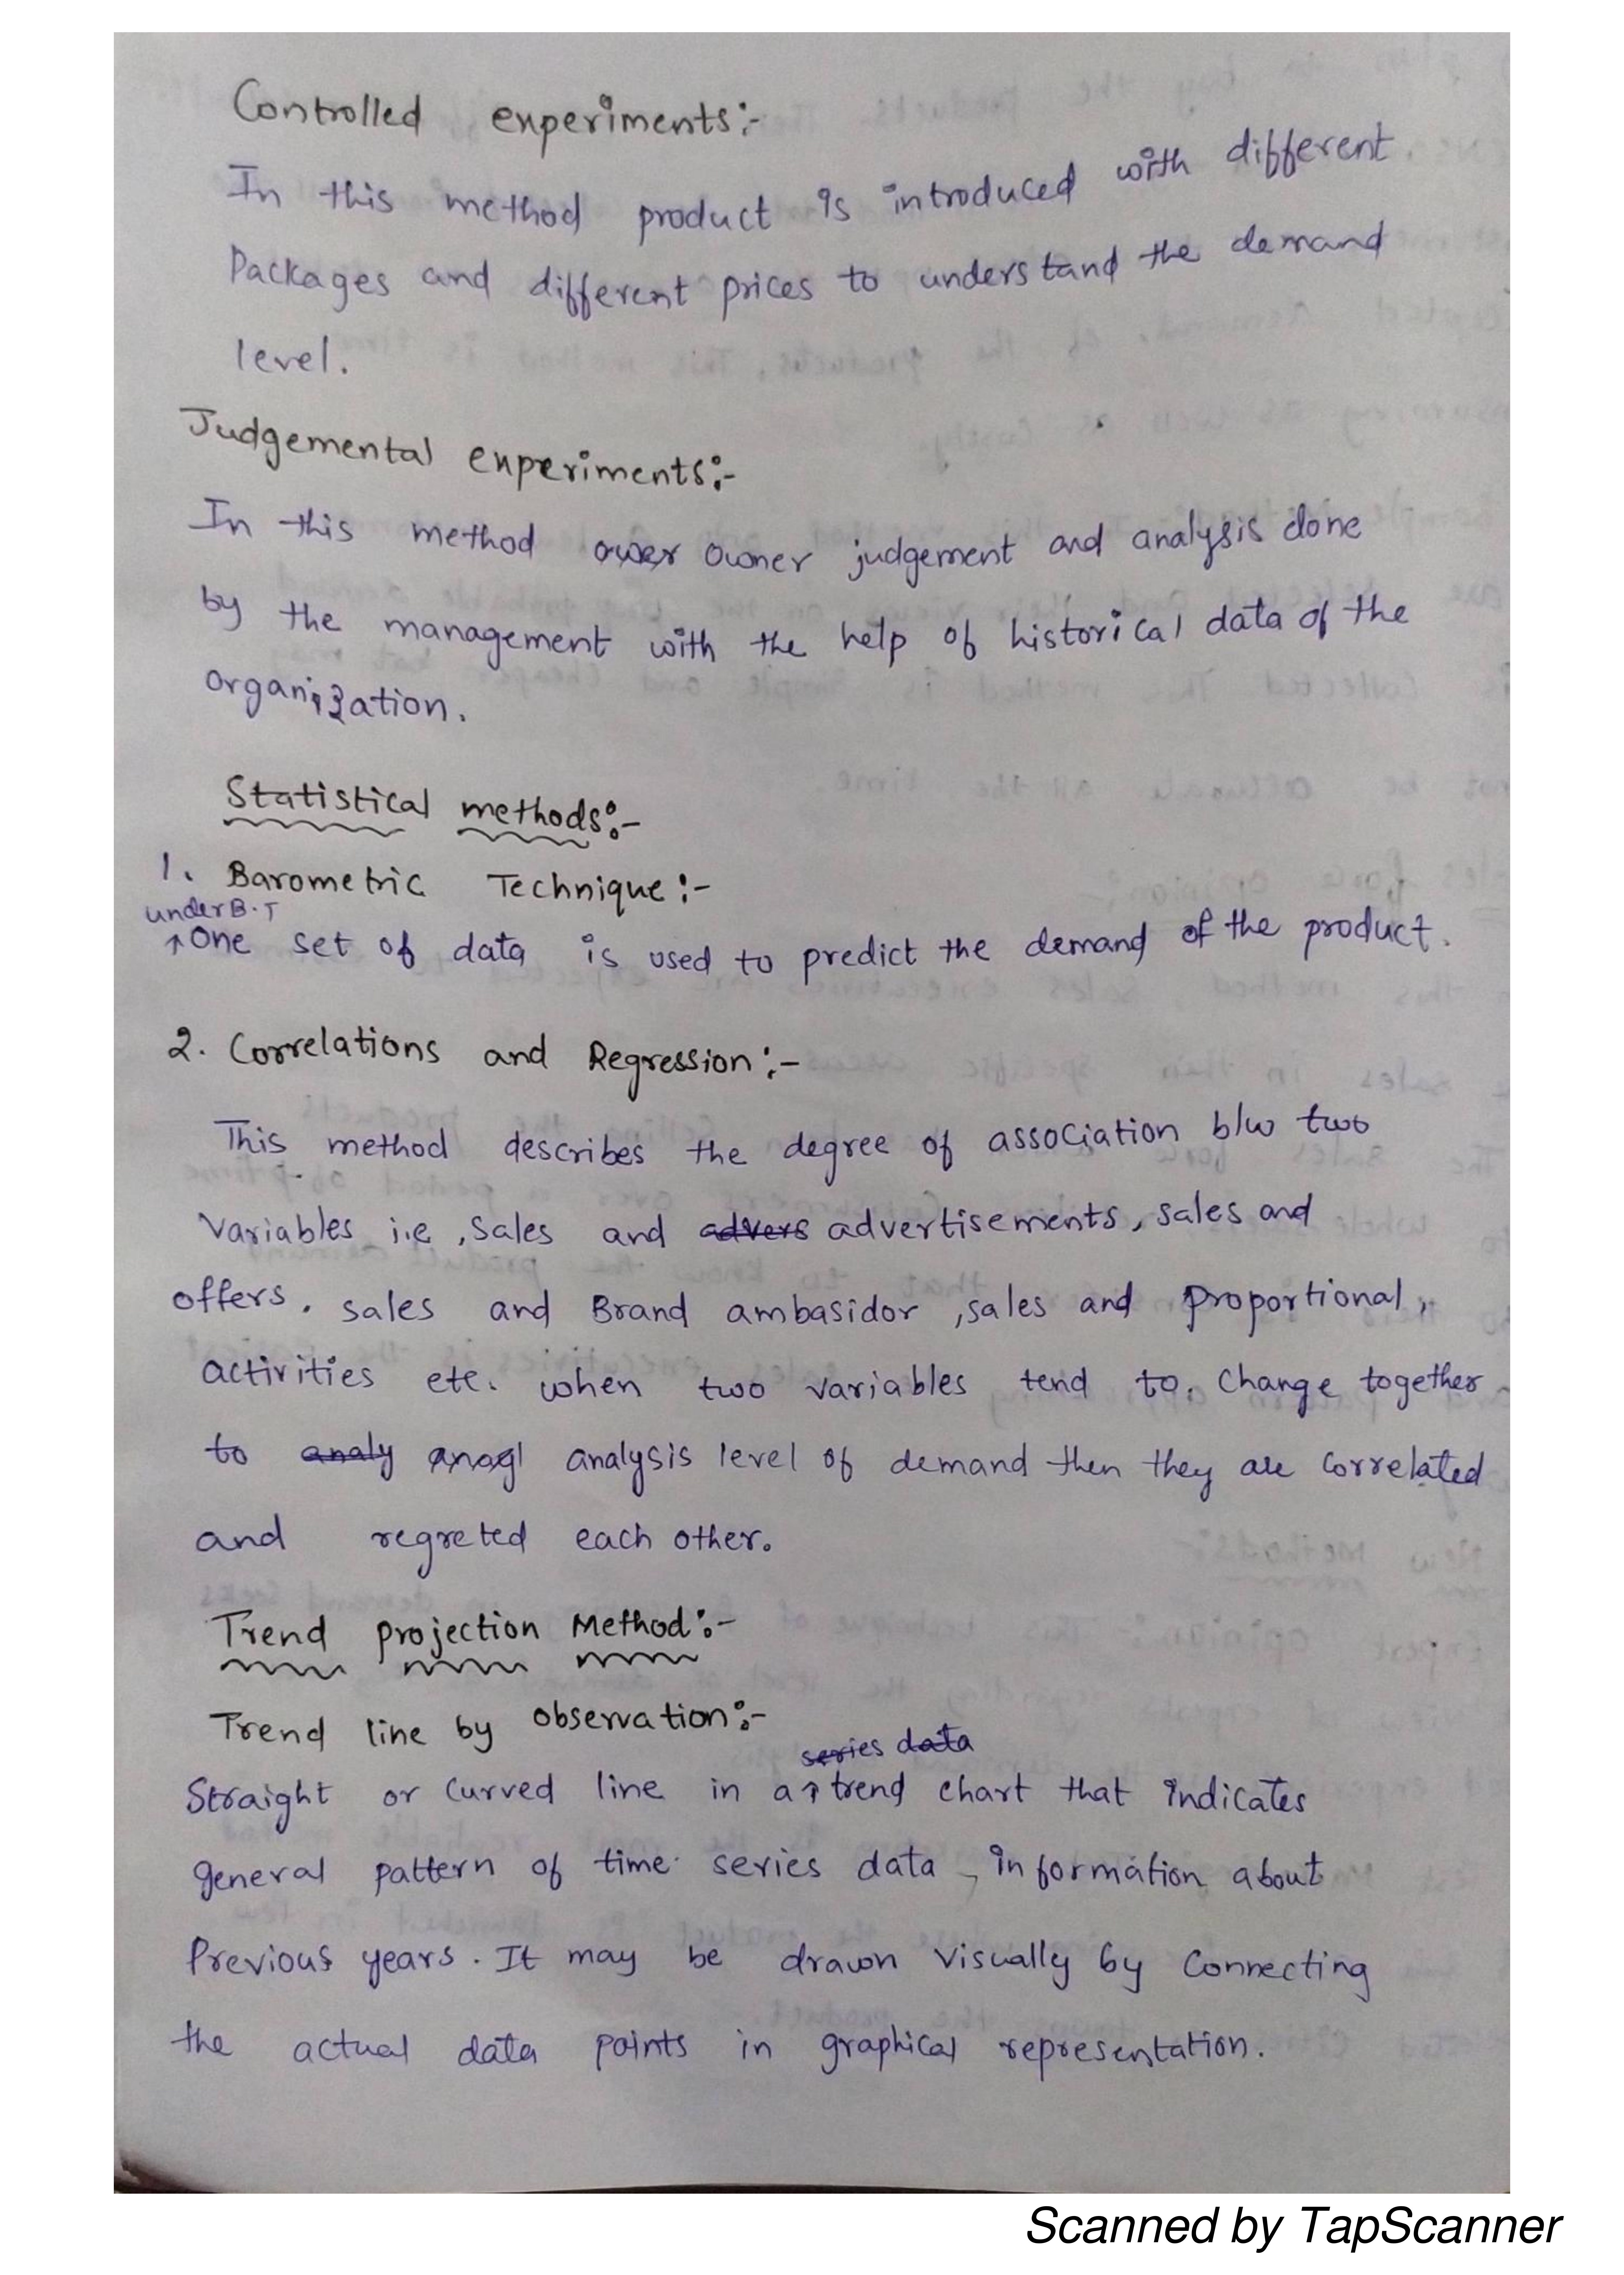 Controlled experiments:-
In this method product is introduced with different
Packages and different prices to understand the demand
level.
Judgemental experiments:-
In this method ower owner judgement and analysis done
by the management with the help of historical data of the
organization.
Statistical methods:-
1. Barometric Technique:-
under B.T
↑ One set of data is used to predict the demand of the product.
2. Correlations and Regression:-
This method describes the degree of association b/w two
Variables i.e, Sales and advers advertisements, sales and
offers. sales and Brand ambasidor, sales and proportional,
activities etc. when two variables tend to. Change together
to analy anagl analysis level of demand then they are correlated
and regreted each other.
Trend projection Method:-
Trend line by observation:-
series data
Straight or Curved line in a ↑ trend chart that indicates
general pattern of time series data, information about
Previous years. It may be drawn Visually by Connecting
the actual data points in graphical representation.
Scanned by TapScanner